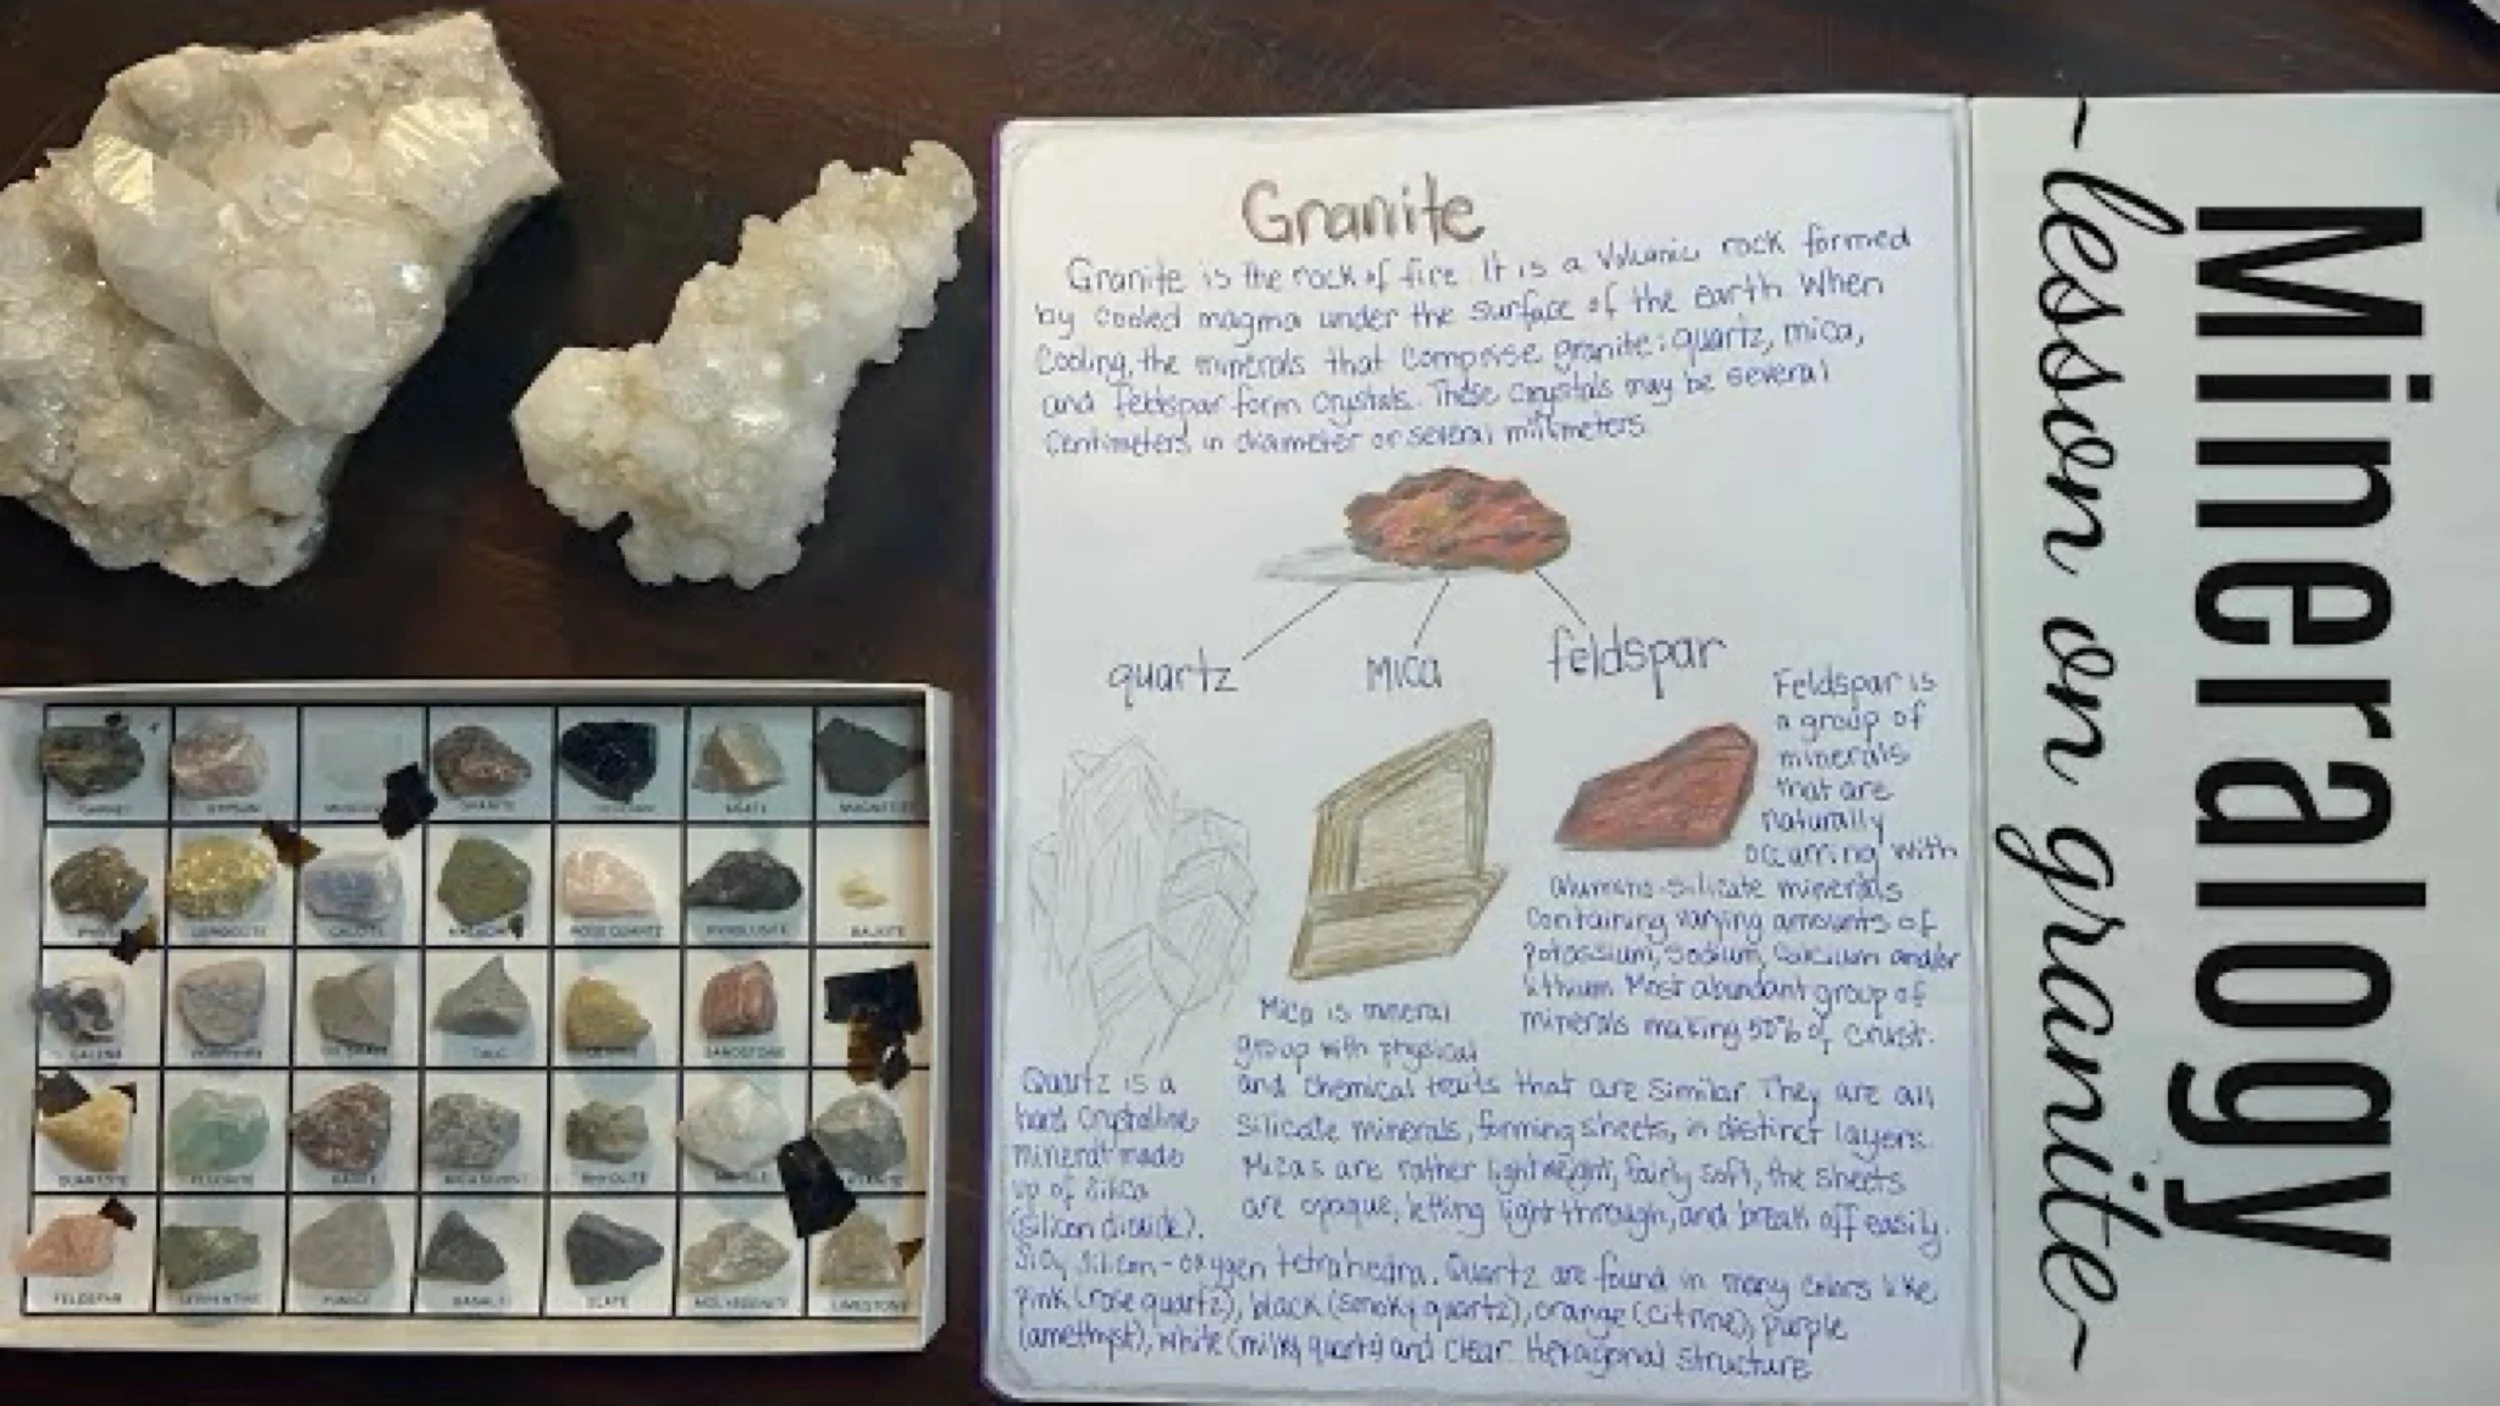 Granite
Granite is the rock of fire. It is a volcanic rock formed
by cooled magma under the surface of the earth. When
cooling, the minerals that comprise granite: quartz, mica,
and feldspar form crystals. These crystals may be several
centimeters in diameter or several millimeters.
quartz
mica
feldspar
Feldspar is
a group of
minerals
that are
naturally
occurring with
alumino-silicate minerals
containing varying amounts of
potassium, sodium, calcium and/or
lithium. Most abundant group of
minerals making 50% of crust.
Mica is mineral
group with physical
and chemical traits that are similar. They are all
silicate minerals, forming sheets, in distinct layers.
Micas are rather lightweight, fairly soft, the sheets
are opaque, letting light through, and break off easily.
Quartz is a
hard crystalline
mineral made
up of silica
(silicon dioxide).
SiO4 silicon-oxygen tetrahedra. Quartz are found in many colors like
pink (rose quartz), black (smoky quartz), orange (citrine), purple
(amethyst), white (milky quartz) and clear. Hexagonal structure
Mineralogy
~lesson on granite~
GARNET
GYPSUM
GRANITE
AGATE
MAGNETITE
CALCITE
ROSE QUARTZ
BAUXITE
GALENA
TALC
SANDSTONE
QUARTZITE
FLUORITE
RHYOLITE
MARBLE
FELDSPAR
SERPENTINE
PUMICE
BASALT
SLATE
MOLYBDENITE
LIMESTONE